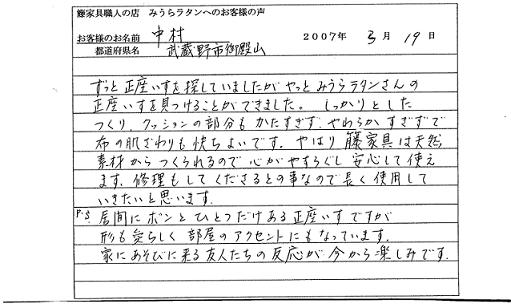 籐家具職人の店 みうらラタンへのお客様の声
お客様のお名前 中村 2007年 3月 19日
都道府県名 武蔵野市御殿山
ずっと正座いすを探していましたがやっとみうらラタンさんの
正座いすを見つけることができました。しっかりとした
つくり、クッションの部分もかたすぎず、やわらかすぎずで
布の肌ざわりも快ちよいです。やはり藤家具は天然
素材からつくられるので心がやすらぐし安心して使え
ます。修理もしてくださるとの事なので長く使用して
いきたいと思います。
P.S 居間にポンとひとつだけある正座いすですが
形も愛らしく部屋のアクセントにもなっています。
家にあそびに来る友人たちの反応が今から楽しみです。